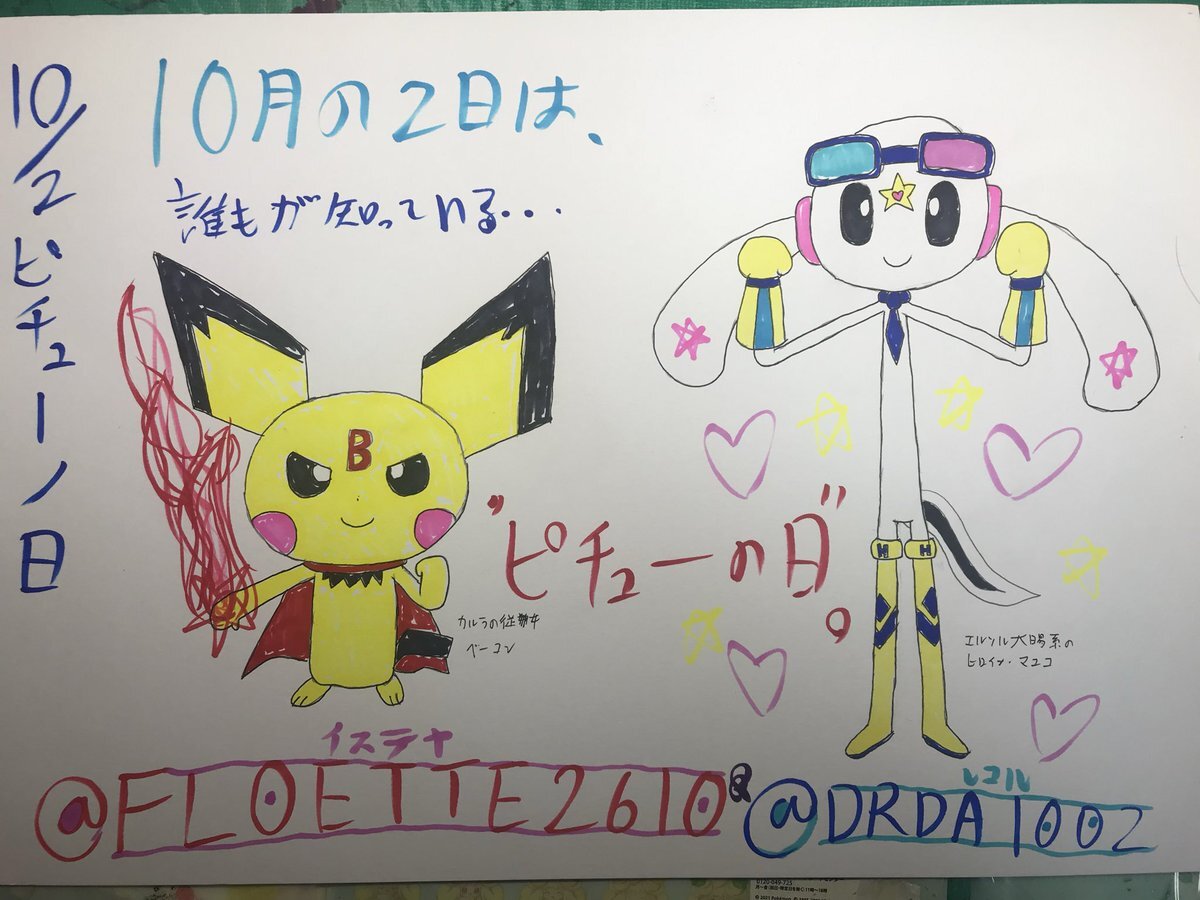 10/2ピチューノ日
10月の2日は、
誰もが知っている・・・
B
"ピチューの日"。
カルラの従姉妹
ベーコン
H H
エルソル太陽系の
ヒロイン・マユコ
イステヤ
@FLOETTE2610
&
レコル
@DRDA1002
0120-049-725